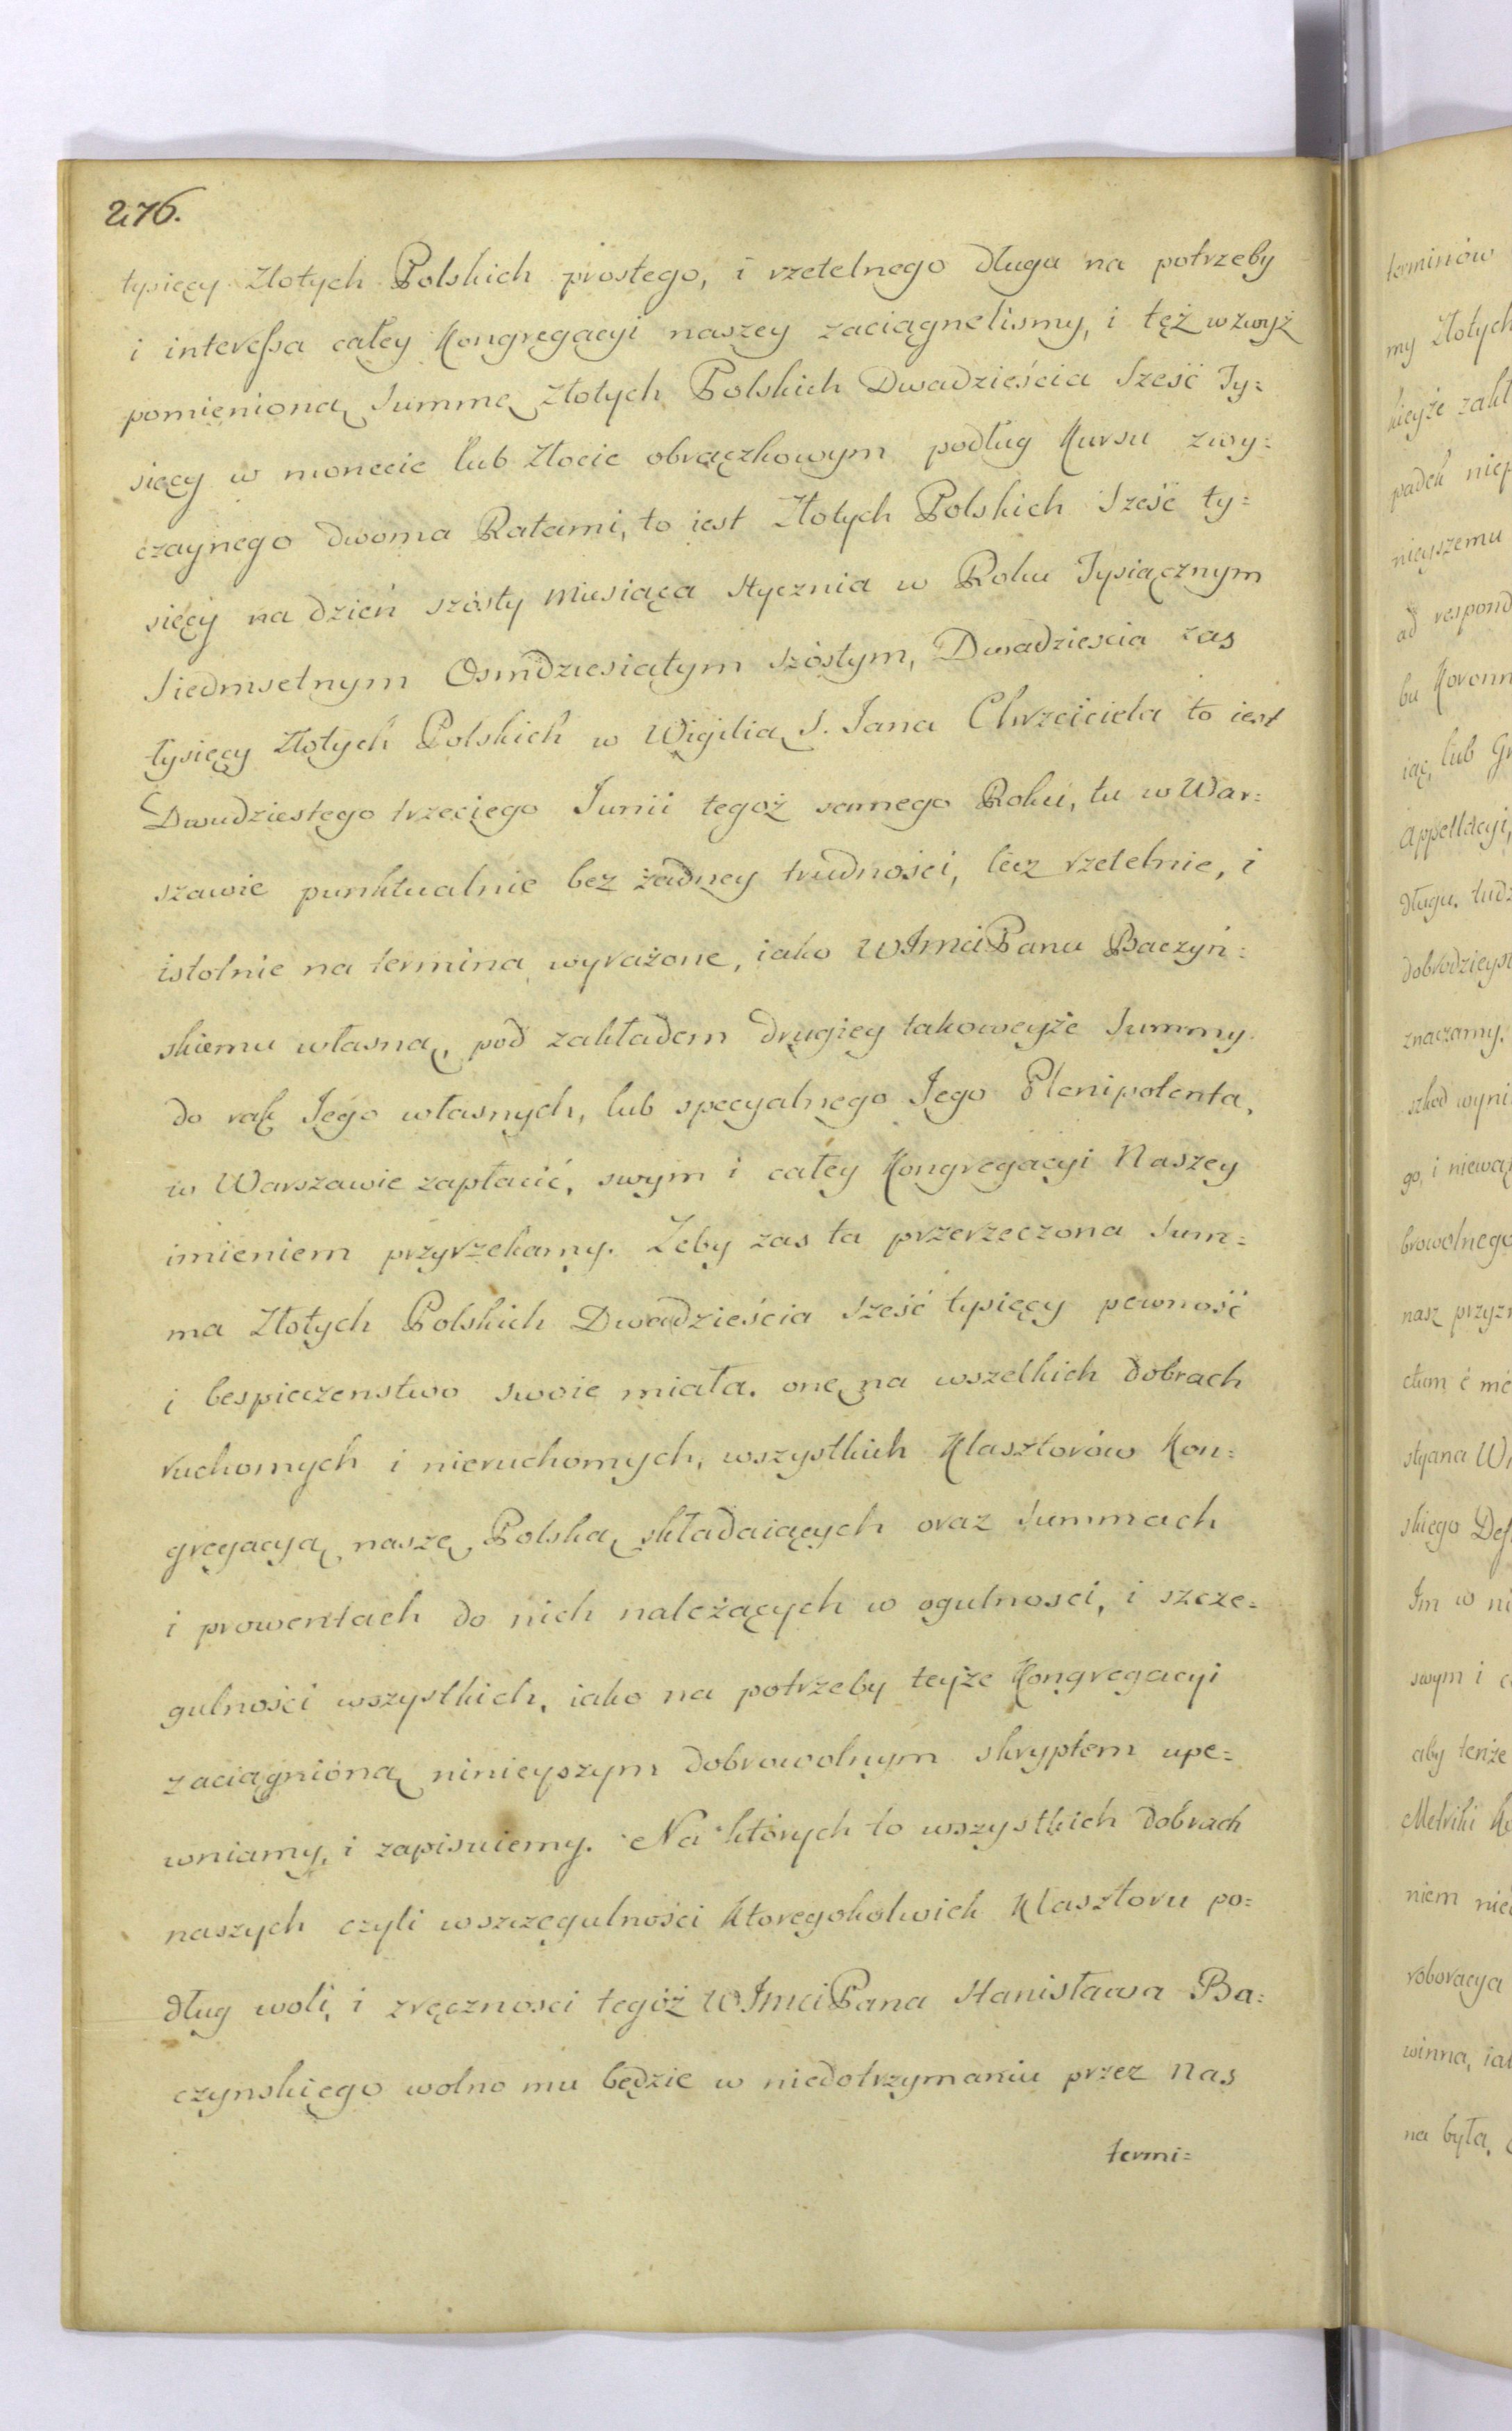 276.
tysięcy Złotych Polskich prostego, i rzetelnego długu na potrzeby
i interessa całey Kongregacyi naszey zaciągnelismy, i tęż wzwyż
pomienioną Summę Złotych Polskich Dwadzieścia Sześć Ty=
sięcy w monecie lub Złocie obrączkowym podług Kursu zwy=
czaynego dwoma Ratami, to iest Złotych Polskich Sześć ty=
sięcy na dzień szósty Miesiąca Stycznia w Roku Tysiącznym
Siedmsetnym Osmdziesiątym szóstym, Dwadziescia zas
tysięcy Złotych Polskich w Wigilią S. Jana Chrzciciela to iest
Dwudziestego trzeciego Junii tegoż samego Roku, tu w War=
szawie punktualnie bez żadney trudności, lecz rzetelnie, i
istotnie na termina wyrażone, iako WJmci Panu Baczyń=
skiemu własną, pod zakładem drugiey takoweyże Summy
do rąk Jego własnych, lub specyalnego Jego Plenipotenta,
w Warszawie zapłacić, swym i całey Kongregacyi Naszey
imieniem przyrzekamy. Żeby zas ta przerzeczona Sum=
ma Złotych Polskich Dwadzieścia Sześć tysięcy pewność
i bespieczenstwo swoie miała. onę na wszelkich dobrach
ruchomych i nieruchomych, wszystkich Klasztorów Kon=
gregacyą naszę Polską składaiących oraz Summach
i prowentach do nich należących w ogulnosci, i szcze=
gulności wszystkich, iako na potrzeby teyże Kongregacyi
zaciągnioną ninieyszym dobrowolnym skryptem upe=
wniamy, i zapisuiemy. Na których to wszystkich dobrach
naszych czyli wszczegulności któregokolwiek Klasztoru po=
dług woli, i zręcznosci tegóż WJmci Pana Stanisława Ba=
czynskiego wolno mu będzie w niedotrzymaniu przez nas
termi=
terminów
my Złotych
padek
nieyszemu
bu
iąc, lub
Appellacyi,
długu.
znaczamy.
szkod
go, i
browolnego
nasz
styana
skiego
Im w
swym i
aby tenże
Metriki
niem
roboracya
winna,
na była,